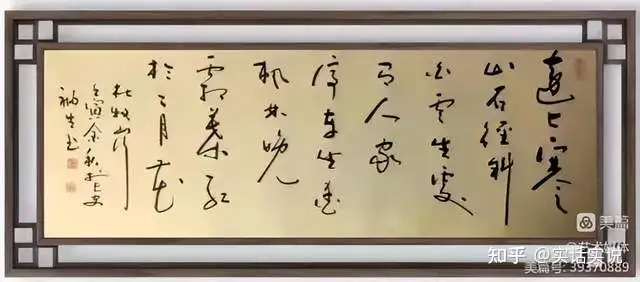 遠上寒
山石徑斜
白云生處
有人家
停车坐爱
枫林晚
霜葉红
於二月花
杜牧诗
壬寅金秋於
生书
美篇
知乎 @实话实说
美篇号: 39370889